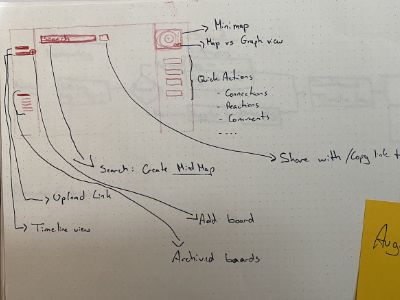 Minimap
Search
Map vs Graph view
Quick Actions
- Connections
- Reactions
- Comments
- ....
Share with /Copy link t
Search: Create MindMap
Upload Link
Add board
Timeline view
Archived boards
Aug